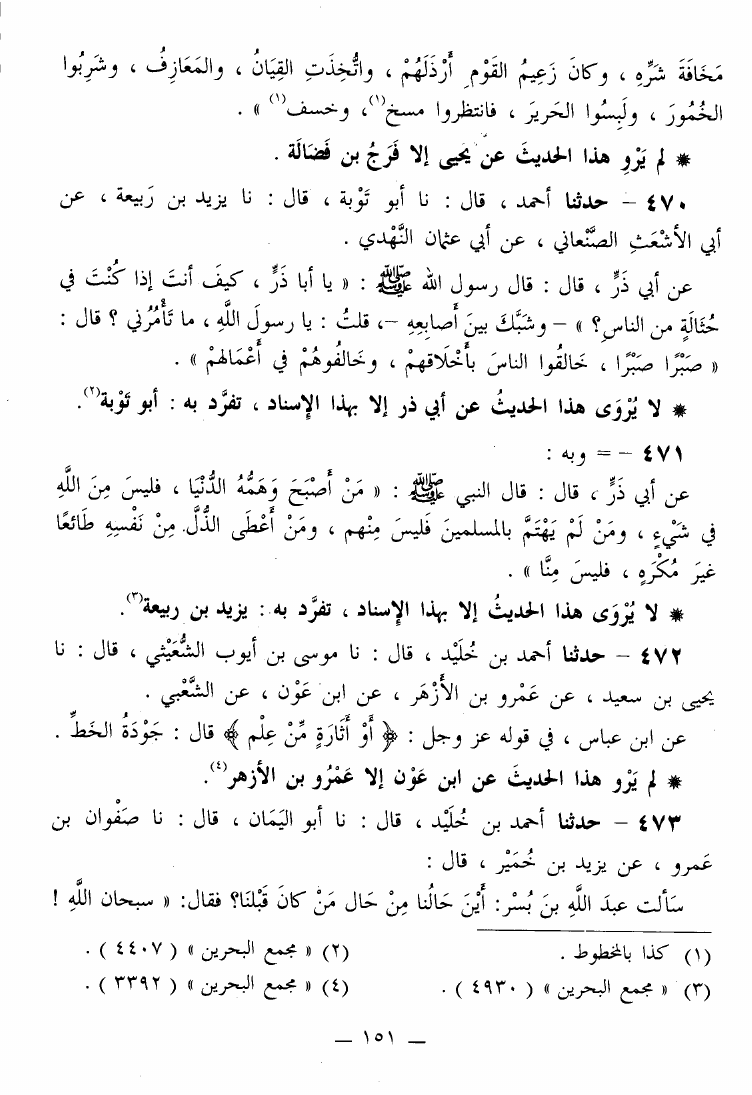 مَخَافَةَ شَرِّهِ ، وكانَ زَعِيمُ القَوْمِ أَرْذَلَهُمْ ، واتُّخِذَتِ القِيَانُ ، والمَعَازِفُ ، وشَرِبُوا
الخُمُورَ ، ولَبِسُوا الحَرِيرَ ، فانتظروا مسخ(١)، وخسف(١) » .
* لم يَرْوِ هذا الحديثَ عن يَحيى إلا فَرَجُ بن فَضَالَة .
٤٧٠ – حدثنا أحمد ، قال : نا أبو تَوْبة ، قال : نا يزيد بن رَبيعة ، عن
أبي الأشْعَثِ الصَّنْعاني ، عن أبي عثمان النَّهْدي .
عن أبي ذَرٍّ ، قال : قال رسول الله ﷺ : « يا أبا ذَرٍّ ، كيفَ أنتَ إذا كُنْتَ في
حُثَالَةٍ من الناسِ؟ » – وشَبَّكَ بينَ أصابِعِهِ –، قلتُ : يا رسولَ اللَّهِ ، ما تَأْمُرُني ؟ قال :
« صَبْرًا صَبْرًا ، خَالقُوا الناسَ بأَخْلاقهمْ ، وخَالفُوهُمْ في أعْمَالهمْ » .
* لا يُرْوَى هذا الحديثُ عن أبي ذر إلا بهذا الإسناد ، تفرَّد به : أبو تَوْبة(٢).
٤٧١ – = وبه :
عن أبي ذَرٍّ ، قال : قال النبي ﷺ : « مَنْ أَصْبَحَ وَهَمُّهُ الدُّنْيَا ، فليسَ مِنَ اللَّهِ
في شَيْءٍ ، ومَنْ لَمْ يَهْتَمَّ بالمسلمينَ فليسَ مِنْهم ، ومَنْ أَعْطَى الذُّلَّ مِنْ نَفْسِهِ طَائعًا
غيرَ مُكْرَهٍ ، فليسَ مِنَّا » .
* لا يُرْوَى هذا الحديثُ إلا بهذا الإسناد ، تفرَّد به : يزيد بن ربيعة(٣).
٤٧٢ – حدثنا أحمد بن خُلَيْد ، قال : نا موسى بن أيوب الشُّعَيْثي ، قال : نا
يحيى بن سعيد ، عن عَمْرو بن الأزْهَر ، عن ابن عَوْن ، عن الشَّعْبي .
عن ابن عباس ، في قوله عز وجل : ﴿ أَوْ أَثَارَةٍ مِّنْ عِلْمٍ ﴾ قال : جَوْدَةُ الخَطِّ .
* لم يَرْوِ هذا الحديثَ عن ابن عَوْن إلا عَمْرُو بن الأزهر(٤).
٤٧٣ – حدثنا أحمد بن خُلَيْد ، قال : نا أبو اليَمَان ، قال : نا صَفْوان بن
عَمرو ، عن يزيد بن خُمَيْر ، قال :
سَألت عبدَ اللَّهِ بنَ بُسْر: أَيْنَ حَالُنا مِنْ حَال مَنْ كانَ قَبْلَنَا؟ فقال: « سبحان اللَّهِ !
(١) كذا بالمخطوط .
(٢) « مجمع البحرين » ( ٤٤٠٧ ) .
(٣) « مجمع البحرين » ( ٤٩٣٠ ) .
(٤) « مجمع البحرين » ( ٣٣٩٢ ) .
— ١٥١ —